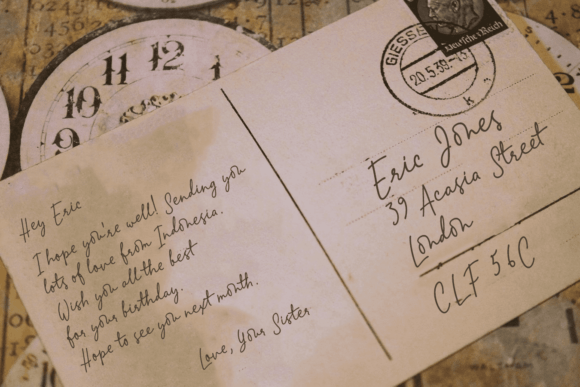 11
12
1
10
9
GIESSE
20.5.39.-13
k
Deutsches Reich
Hey Eric
I hope you're well! Sending you
lots of love from Indonesia.
Wish you all the best
for your birthday.
Hope to see you next month.
Love, Your Sister
Eric Jones
39 Acasia Street
London
CLF 56C
WALTHAM